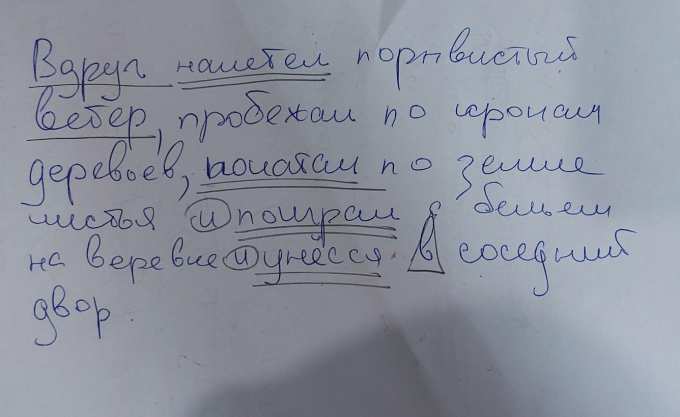 Вдруг налетел порывистый
ветер, пробежал по кронам
деревьев, покатал по земле
листья и поиграл с бельем
на веревке и унёсся в соседний
двор.